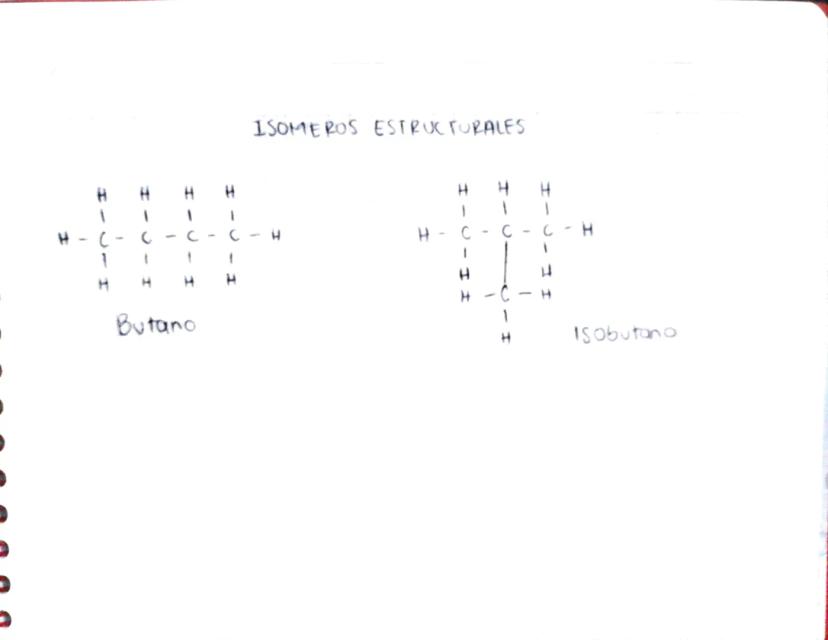 ISOMEROS ESTRUCTURALES
H H H H
H - C - C - C - C - H
H H H H
Butano
H H H
H - C - C - C - H
H H
H - C - H
H
Isobutano